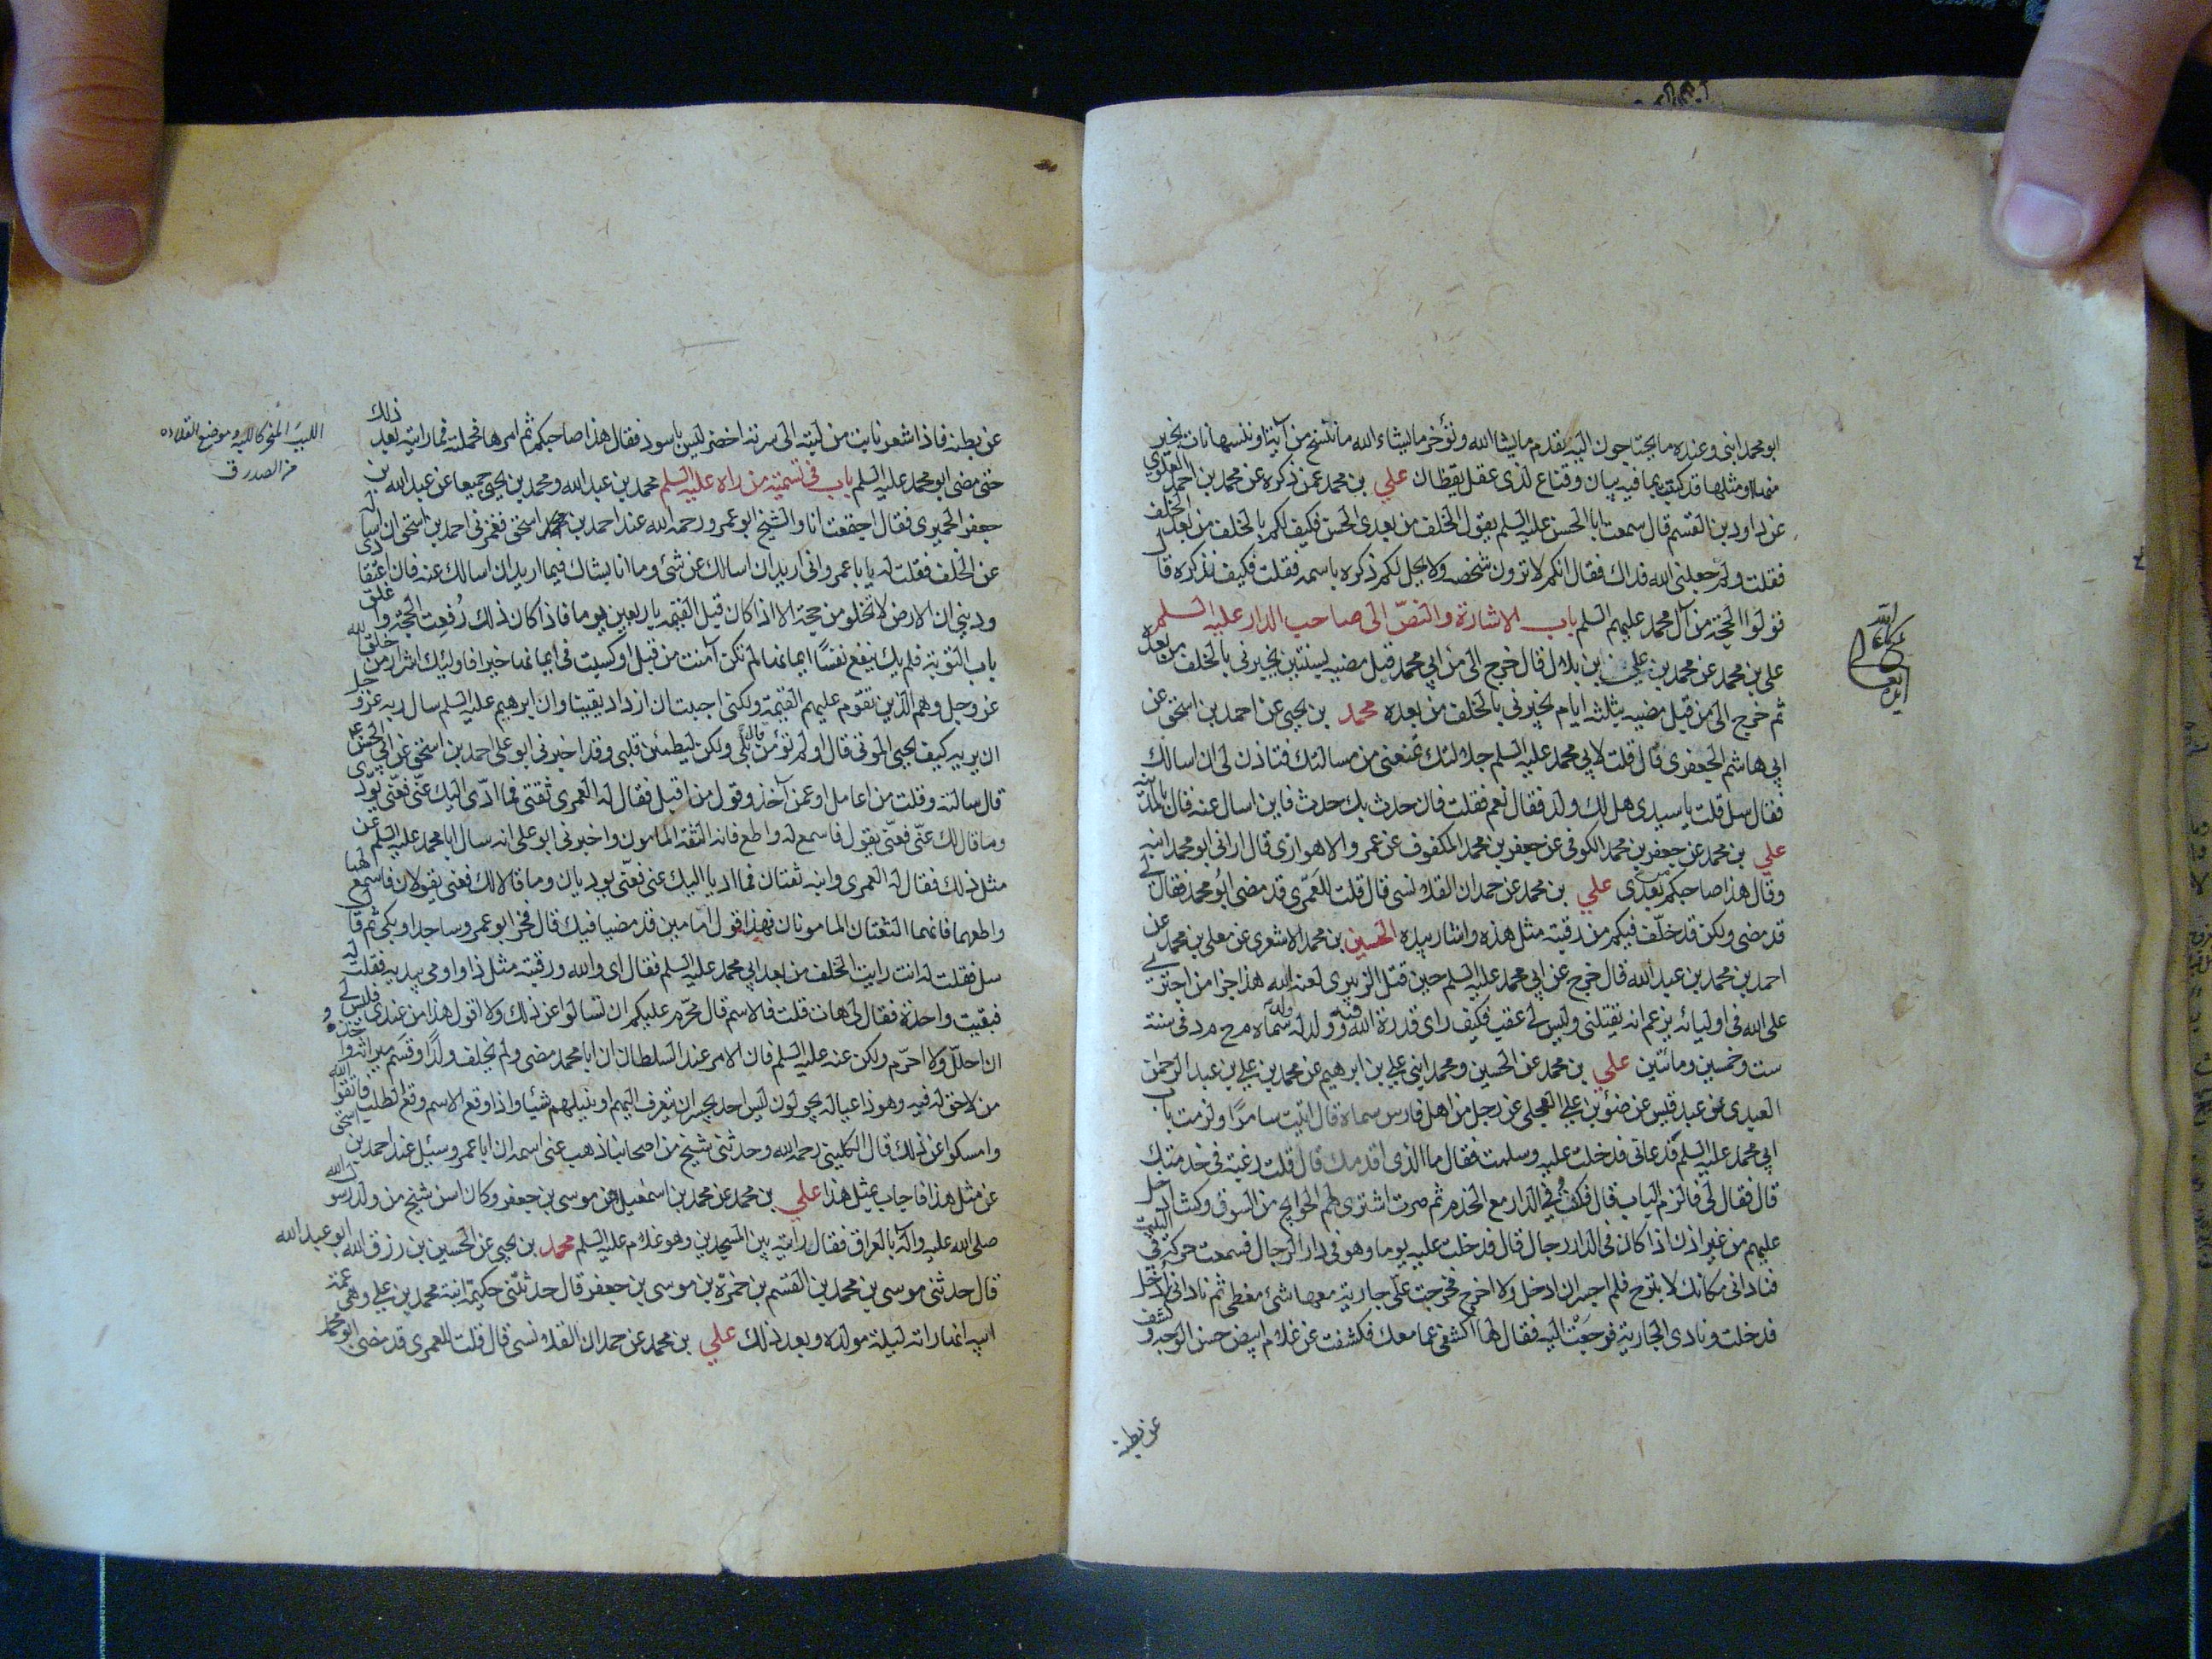 ابو محمد ابنى وعنده ما يحتاجون اليه يقدم ما يشاء الله ويؤخر ما يشاء الله ما ننسخ من آية او ننسها نات بخير
منها او مثلها قد كتبت بما فيه بيان وقناع لذى عقل يقظان علي بن محمد عمن ذكره عن محمد بن احمد العلوى
عن داود بن القسم قال سمعت ابا الحسن عليه السلم يقول الخلف من بعدى الحسن فكيف لكم بالخلف من بعد الخلف
فقلت ولم جعلنى الله فداك فقال انكم لا ترون شخصه ولا يحل لكم ذكره باسمه فقلت فكيف نذكره قال
قولوا الحجة من آل محمد عليهم السلم باب الاشارة والنصّ الى صاحب الدار عليه السلم
علي بن محمد عن محمد بن علي بن بلال قال خرج الى من ابي محمد قبل مضيه بسنتين يخبرنى بالخلف من بعده
ثم خرج الى من قبل مضيه بثلثة ايام يخبرنى بالخلف من بعده محمد بن يحيى عن احمد بن اسحق عن
ابي هاشم الجعفرى قال قلت لابي محمد عليه السلم جلالتك تمنعنى من مسالتك فتاذن لى ان اسالك
فقال سل قلت يا سيدى هل لك ولد فقال نعم فقلت فان حدث بك حدث فاين اسال عنه قال بالمدينه
علي بن محمد عن جعفر بن محمد الكوفى عن جعفر بن محمد المكفوف عن عمرو الاهوازى قال ارانى ابو محمد ابنه
وقال هذا صاحبكم من بعدى علي بن محمد عن حمدان القلانسى قال قلت للعَمرى قد مضى ابو محمد فقال لى
قد مضى ولكن قد خلّف فيكم من رقبته مثل هذه واشار بيده الحسين بن محمد الاشعرى عن معلى بن محمد عن
احمد بن محمد بن عبد الله قال خرج عن ابي محمد عليه السلم حين قتل الزبيرى لعنه الله هذا جزا من اجترى
على الله فى اوليائه يزعم انه يقتلنى وليس لى عقب فكيف راى قدرة الله فيه وولد له ولد سماه م ح م د فى سنة
ست وخمسين ومائتين علي بن محمد عن الحسين ومحمد ابنى علي بن ابرهيم عن محمد بن علي بن عبد الرحمن
العبدى عن عبد قيس عن ضوء بن علي العجلى عن رجل من اهل فارس سماه قال اتيت سامرّا ولزمت باب
ابي محمد عليه السلم فدعانى فدخلت عليه وسلمت فقال ما الذى اقدمك قال قلت رغبة فى خدمتك
قال فقال لى فالزم الباب قال فكنتُ فى الدار مع الخدم ثم صرت اشترى لهم الحوايج من السوق وكنت ادخل
عليهم من غير اذن اذا كان فى الدار رجال قال فدخلت عليه يوما وهو فى دار الرجال فسمعت حركة فى البيت
فنادانى مكانك لا تبرح فلم اجسر ان ادخل ولا اخرج فخرجت علىّ جارية معها شئ مغطى ثم نادانى ادخل
فدخلت ونادى الجارية فرجعت اليه فقال لها اكشفى عما معك فكشفت عن غلام ابيض حسن الوجه وكشف
عن بطنه
عن بطنه فاذا شعر نابت من لبّته الى سرته اخضر ليس باسود فقال هذا صاحبكم ثم امرها فحملته فما رايته بعد ذلك
حتى مضى ابو محمد عليه السلم باب فى تسمية من راه عليه السلم محمد بن عبد الله ومحمد بن يحيى جميعا عن عبد الله بن
جعفر الحميرى فقال اجتمعت انا والشيخ ابو عمرو رحمه الله عند احمد بن اسحق فغمزنى احمد بن اسحق ان اساله
عن الخلف فقلت له يا با عمرو انى اريد ان اسالك عن شئ وما انا بشاك فيما اريد ان اسالك عنه فان اعتقادى
ودينى ان الارض لا تخلو من حجة الا اذا كان قبل القيمة باربعين يوما فاذا كان ذلك رُفعت الحجة واغلق
باب التوبة فلم يك ينفع نفسًا ايمانها لم تكن آمنت من قبل او كسبت فى ايمانها خيرا فاولئك اشرار من خلق الله
عز وجل وهم الذين تقوم عليهم القيمة ولكنى احببت ان ازداد يقينا وان ابرهيم عليه السلم سال ربه عز وجل
ان يريه كيف يحيى الموتى قال اولم تؤمن قال بلى ولكن ليطمئن قلبى وقد اخبرنى ابو على احمد بن اسحق عن ابي الحسن ع
قال سالته وقلت من اعامل او عمن آخذ وقول من اقبل فقال له العمرى ثقتى فما ادّى اليك عنّى فعنّى يودّى
وما قال لك عنّى فعنّى يقول فاسمع له واطع فانه الثقة المامون واخبرنى ابو على انه سال ابا محمد عليه السلم عن
مثل ذلك فقال له العمرى وابنه ثقتان فما اديا اليك عنى فعنّى يوديان وما قالا لك فعنى يقولان فاسمع لهما
واطعهما فانهما الثقتان المامونان فهذا قول امامين قد مضيا فيك قال فخرّ ابو عمرو ساجدا وبكى ثم قال
سل فقلت له انت رايت الخلف من بعد ابي محمد عليه السلم فقال اى والله ورقبته مثل ذا واومى بيديه فقلت له
فبقيت واحدة فقال لى هات قلت فالاسم قال محرّم عليكم ان تسالوا عن ذلك ولا اقول هذا من عندى فليس لى
ان احلّل ولا احرّم ولكن عنه عليه السلم فان الامر عند السلطان ان ابا محمد مضى ولم يخلف ولدًا وقسّم ميراثه واخذه
من لا حق له فيه وهوذا عياله يجولون ليس احد يجسر ان يتعرف اليهم او ينيلهم شيئا واذا وقع الاسم وقع الطلب فاتقوا الله
وامسكوا عن ذلك قال الكلينى رحمه الله وحدثنى شيخ من اصحابنا ذهب عنى اسمه ان ابا عمرو سئل عند احمد بن اسحق
عن مثل هذا فاجاب بمثل هذا علي بن محمد عن محمد بن اسمعيل بن موسى بن جعفر وكان اسن شيخ من ولد رسول الله
صلى الله عليه وآله بالعراق فقال رايته بين المسجدين وهو غلام عليه السلم محمد بن يحيى عن الحسين بن رزق الله ابو عبد الله
قال حدثنى موسى بن محمد بن القسم بن حمزة بن موسى بن جعفر قال حدثتنى حكيمة ابنة محمد بن علي وهى عمة
ابيه انها راته ليلة مولده وبعد ذلك علي بن محمد عن حمدان القلانسى قال قلت للعمرى قد مضى ابو محمد
اللبب المنحر كاللبة وموضع القلادة
من الصدر ق